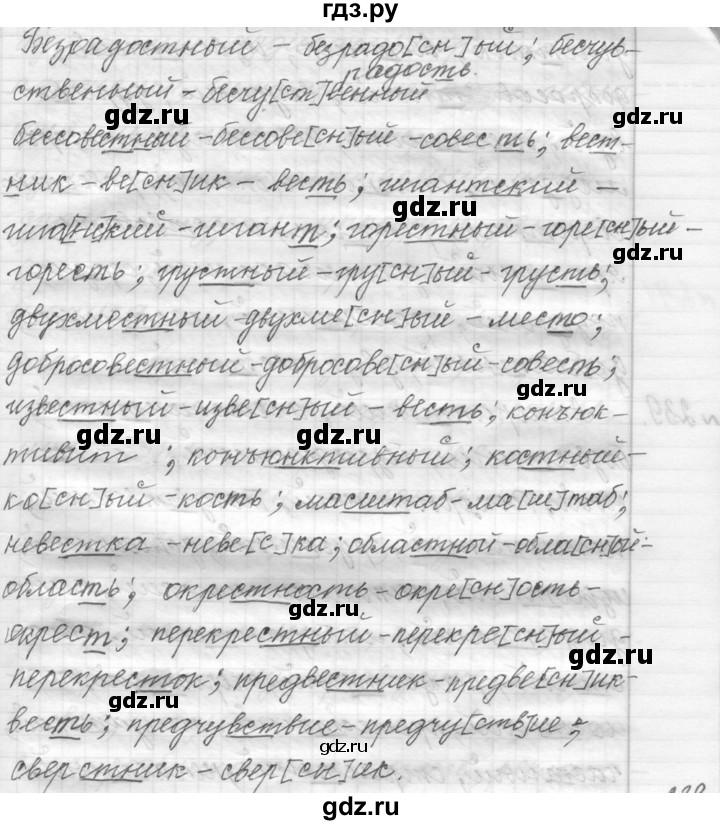 гдз.ру
Безрадостный - безрадо[сн]ый; бесчув-
радость.
ственный - бесчу[ст]венный
gdz.ru
gdz.ru
бессовестный - бессове[сн]ый - совесть; вест-
ник - ве[сн]ик - весть; гигантский -
gdz.ru
гига[нс]кий - гигант; горестный - горе[сн]ый -
gdz.ru
горесть; грустный - гру[сн]ый - грусть;
gdz.ru
двухместный - двухме[сн]ый - место;
gdz.ru
добросовестный - добросове[сн]ый - совесть;
gdz.ru
известный - изве[сн]ый - весть; конъюк-
gdz.ru
gdz.ru
тивит; конъюнктивный; костный -
ко[сн]ый - кость; масштаб - ма[ш]таб;
gdz.ru
невестка - неве[с]ка; областной - обла[сн]ой -
область; окрестность - окре[сн]ость -
gdz.ru
окрест; перекрестный - перекре[сн]ый -
gdz.ru
перекресток; предвестник - предве[сн]ик -
gdz.ru
весть; предчувствие - предчу[ств]ие;
gdz.ru
сверстник - свер[сн]ик.
gdz.ru
239.